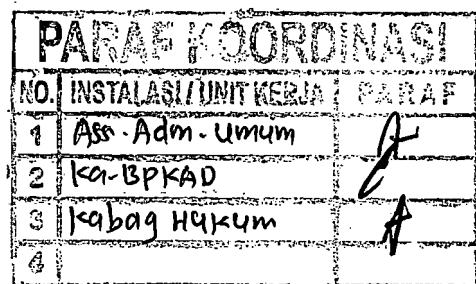 PARAF KOORDINASI
NO. INSTALASI / UNIT KERJA PARAF
1 Ass. Adm. Umum
2 Ka-BPKAD
3 Kabag Hukum
4